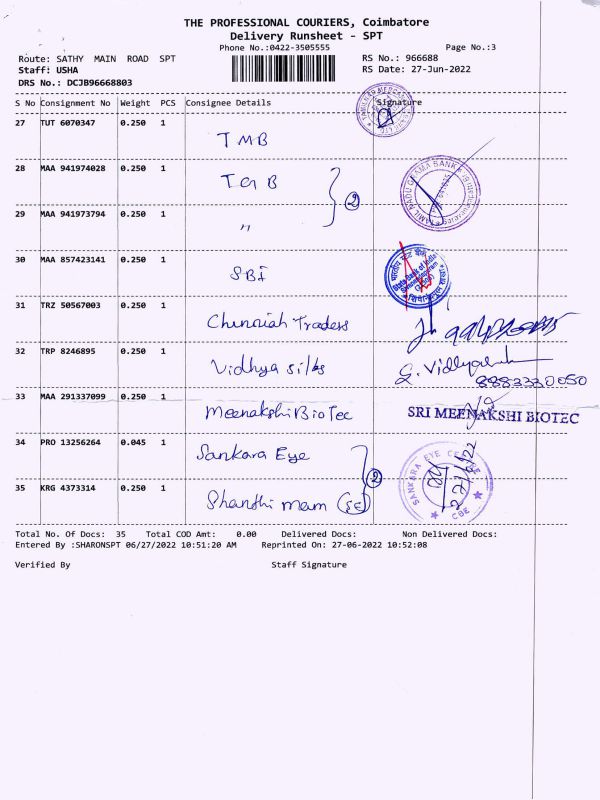 THE PROFESSIONAL COURIERS, Coimbatore
Delivery Runsheet - SPT
Phone No.:0422-3505555
Page No.:3
Route: SATHY MAIN ROAD SPT
RS No.: 966688
Staff: USHA
RS Date: 27-Jun-2022
DRS No.: DCJB96668803
S No Consignment No Weight PCS Consignee Details Signature
27 TUT 6070347 0.250 1
TMB
28 MAA 941974028 0.250 1
TGB
2
TAMIL NADU GRAMA BANK
29 MAA 941973794 0.250 1
"
30 MAA 857423141 0.250 1
SBI
भारतीय स्टेट बैंक
State Bank of India
31 TRZ 50567003 0.250 1
Chinniah Traders
32 TRP 8246895 0.250 1
Vidhya silks
33 MAA 291337099 0.250 1
Meenakshi BioTec
SRI MEENAKSHI BIOTEC
34 PRO 13256264 0.045 1
Sankara Eye
2
SANKARA EYE CENTRE
CBE
35 KRG 4373314 0.250 1
Shanthi mam (SE)
Total No. Of Docs: 35 Total COD Amt: 0.00 Delivered Docs: Non Delivered Docs:
Entered By :SHARONSPT 06/27/2022 10:51:20 AM Reprinted On: 27-06-2022 10:52:08
Verified By Staff Signature